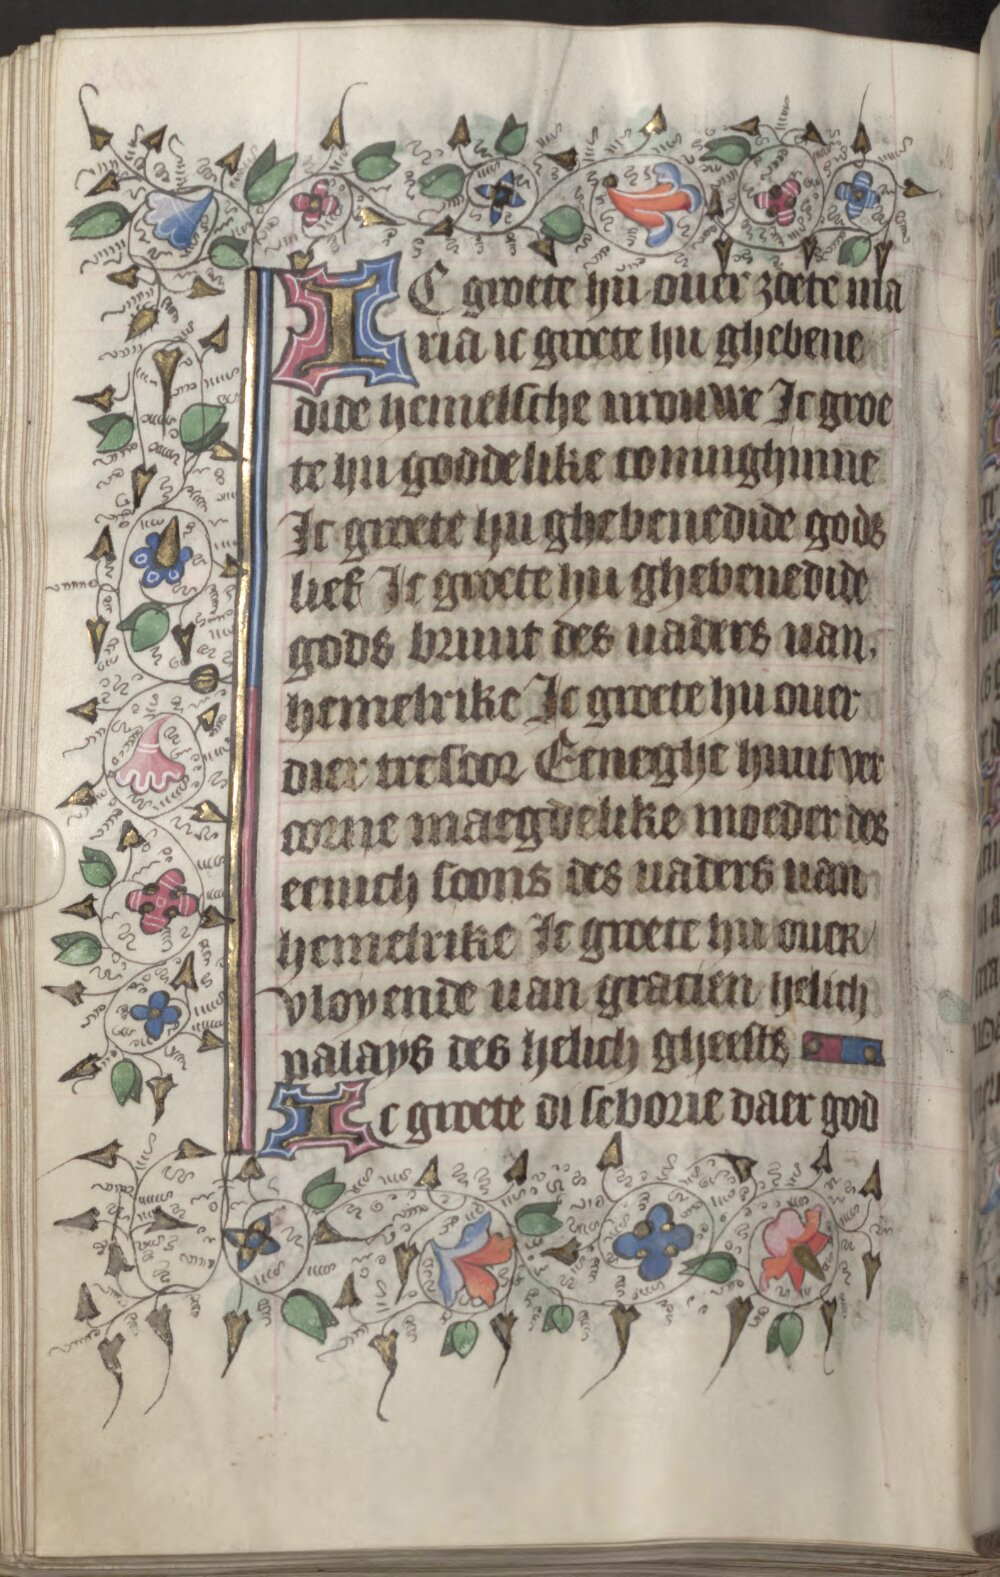 IC groete hu ouer zoete ma
ria ic groete hu ghebene
dide hemelsche urouwe Ic groe
te hu goddelike coninghinne
Ic groete hu ghebenedide gods
lief Ic groete hu ghebenedide
gods bruut des uaders uan
hemelrike Ic groete hu ouer
dier tresoor Eeneghe huut ver
corne maegdelike moeder des
eenich soons des uaders uan
hemelrike Ic groete hu ouer
vloyende uan gracien helich
palays des helich gheests
Ic groete di seborie daer god